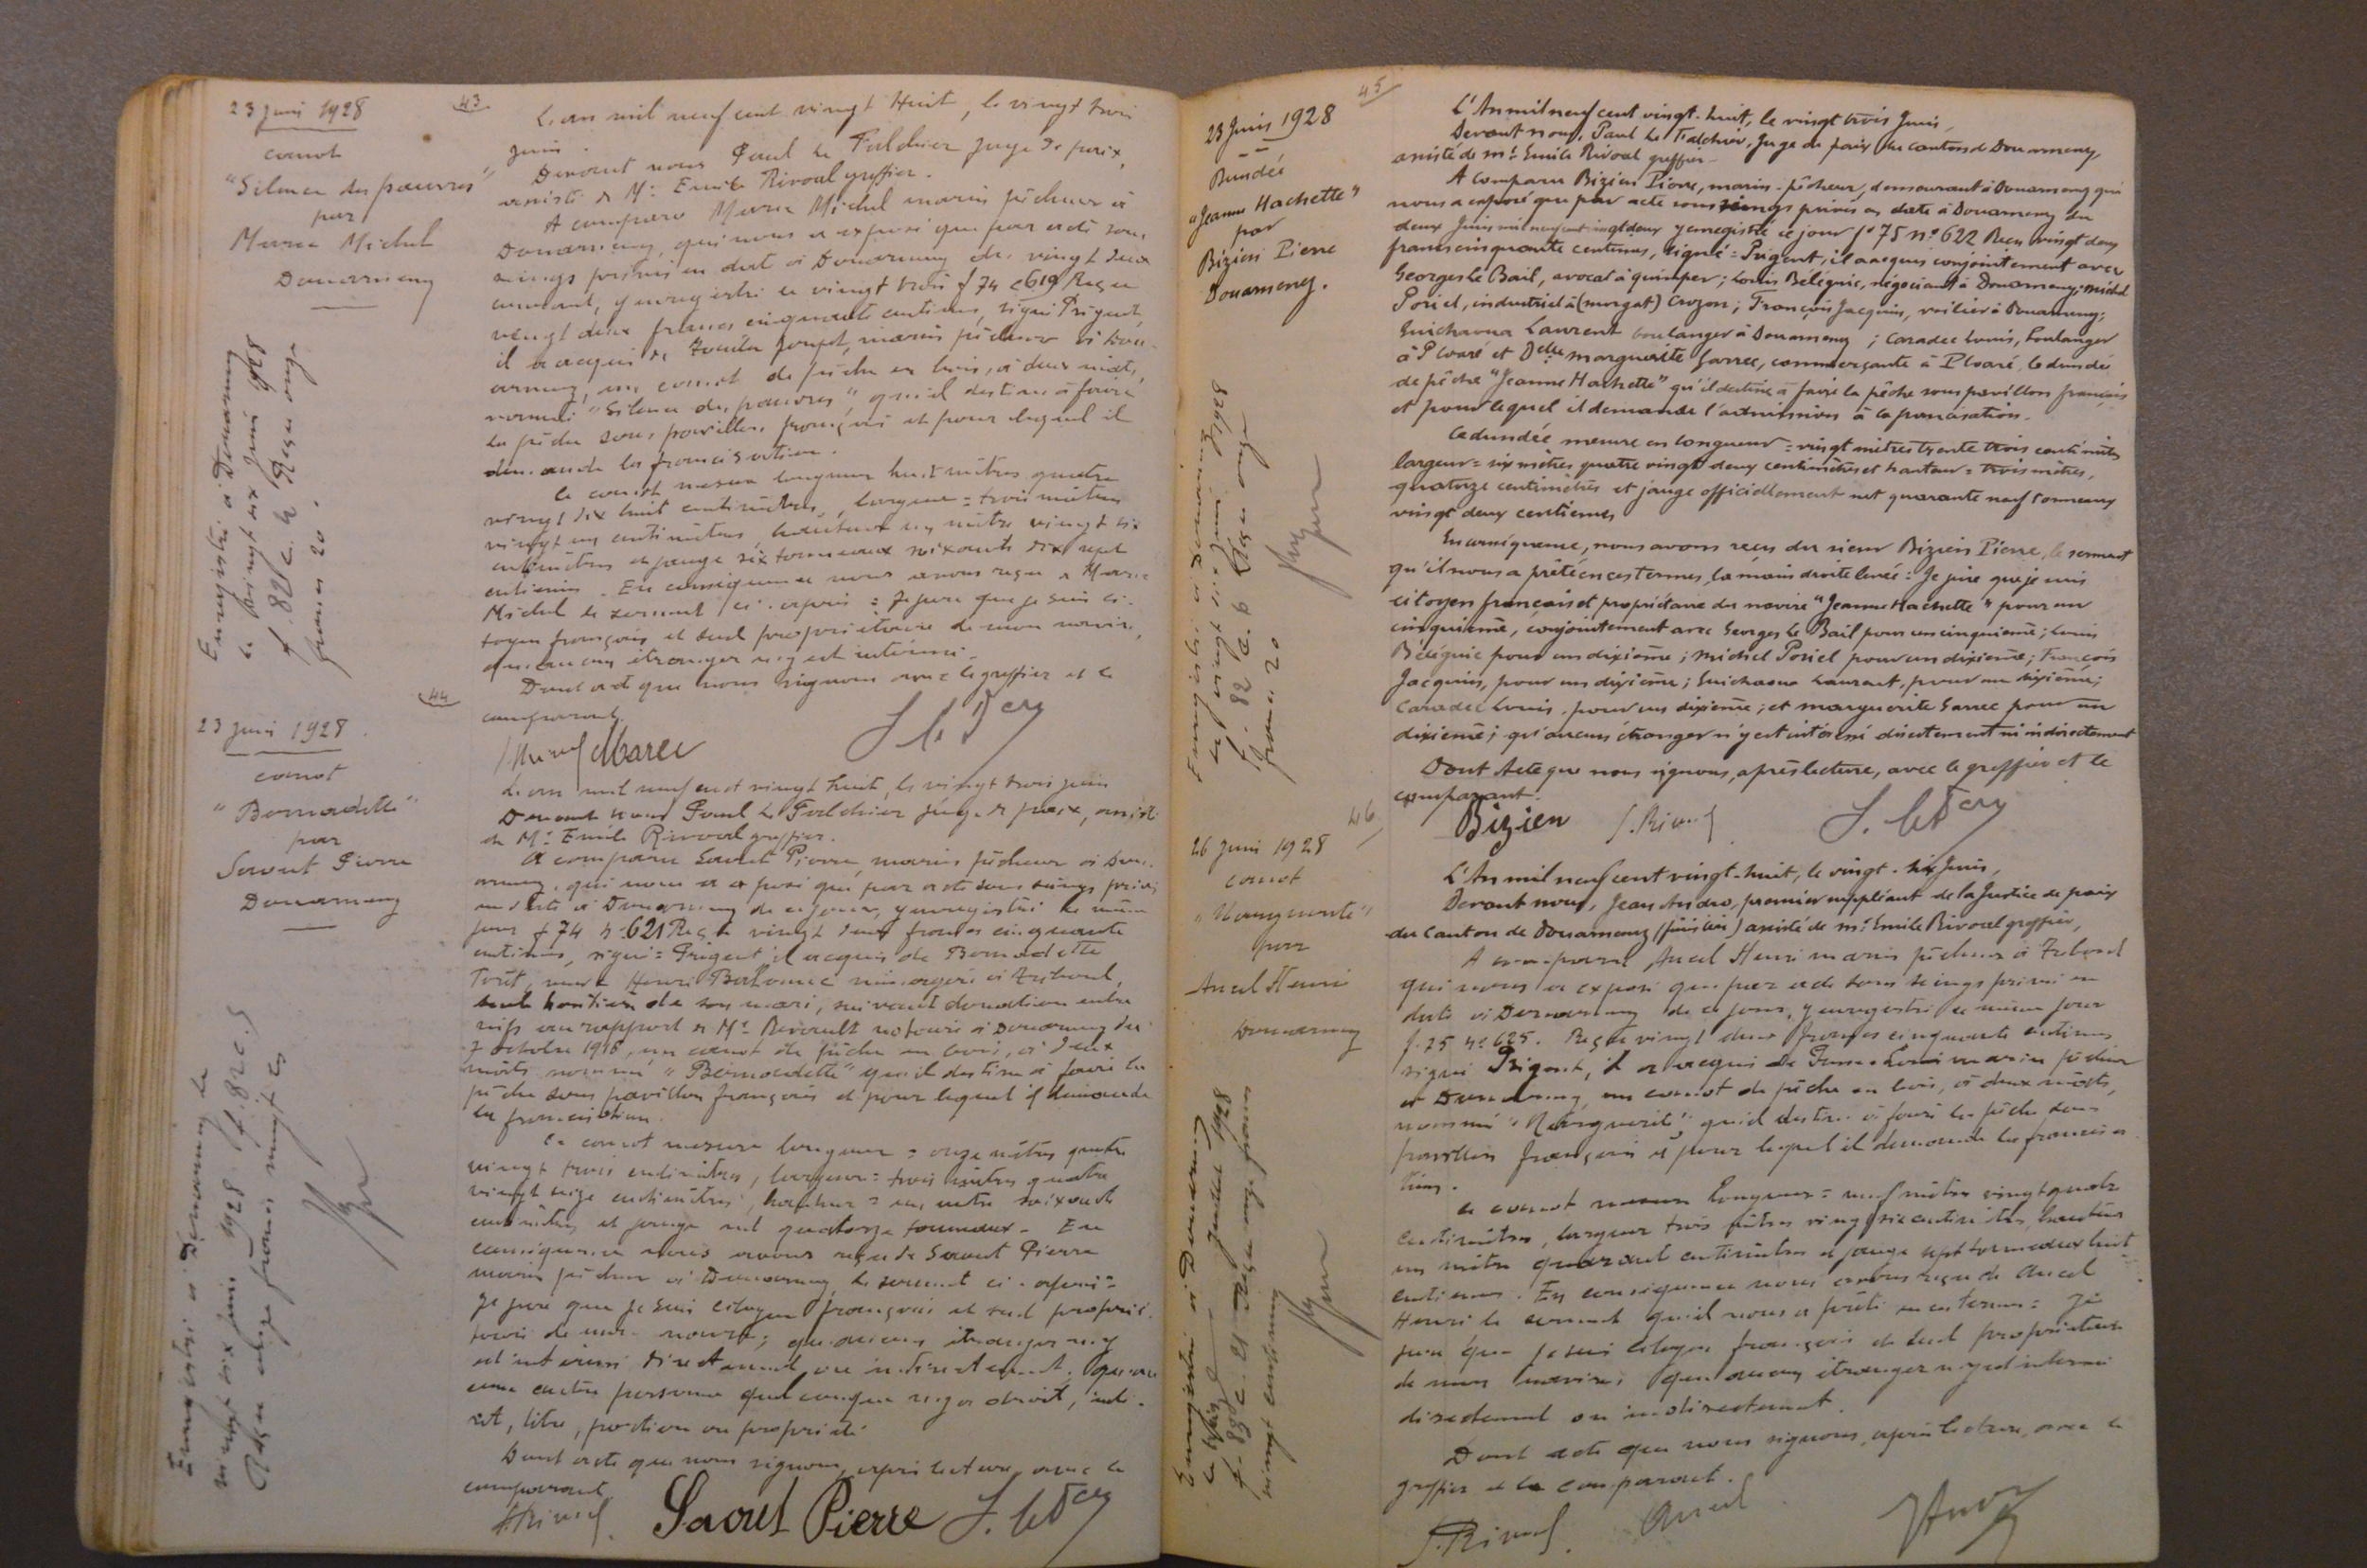 23 Juin 1928
canot
"Silence des pauvres"
par
Marec Michel
Douarnenez
Enregistré à Douarnenez
le vingt six Juin 1928
f. 82 c. 4 Reçu onze
francs 20.
43
L'an mil neuf cent vingt huit, le vingt trois
Juin.
Devant nous Paul Le Falchier Juge de paix,
assisté de Me Emile Rivoal greffier.
A comparu Marec Michel marin pêcheur à
Douarnenez, qui nous a exposé que par acte sous
seings privés en date à Douarnenez du vingt deux
courant, y enregistré le vingt trois f 74 c 619 Reçu
vingt deux francs cinquante centimes, signé Prigent,
il a acquis de Joseph, marin pêcheur à Dou-
arnenez, un canot de pêche en bois, à deux mâts,
nommé "Silence des pauvres", qu'il destine à faire
la pêche sous pavillon français et pour lequel il
demande la francisation.
Ce canot mesure longueur huit mètres quatre
vingt dix huit centimètres, largeur = trois mètres
vingt un centimètres, hauteur un mètre vingt six
centimètres et jauge six tonneaux soixante dix sept
centièmes. En conséquence nous avons reçu de Marec
Michel le serment ci-après : Je jure que je suis ci-
toyen français et seul propriétaire de mon navire,
qu'aucun étranger n'y est intéressé.
Dont acte que nous signons avec le greffier et le
comparant.
Marec
44
23 Juin 1928
canot
"Bernadette"
par
Savout Pierre
Douarnenez
Enregistré à Douarnenez le
vingt six Juin 1928 f. 82 c. 5
Reçu onze francs vingt cs
L'an mil neuf cent vingt huit, le vingt trois juin
Devant nous Paul Le Falchier Juge de paix, assisté
de Me Emile Rivoal greffier.
A comparu Savout Pierre, marin pêcheur à Dou-
arnenez, qui nous a exposé que par acte sous seings privés
en date à Douarnenez de ce jour, y enregistré le même
jour f 74 n° 621 Reçu vingt deux francs cinquante
centimes, signé = Prigent, il acquis de Bernadette
veuve Henri ménagère à Tréboul,
seule héritière de son mari, suivant donation entre
vifs au rapport de Me notaire à Douarnenez du
7 octobre 1918, un canot de pêche en bois, à deux
mâts nommé "Bernadette" qu'il destine à faire la
pêche sous pavillon français et pour lequel il demande
la francisation.
Ce canot mesure longueur = onze mètres quatre
vingt trois centimètres, largeur = trois mètres quatre
vingt seize centimètres, hauteur = un mètre soixante
centimètres et jauge net quatorze tonneaux. En
conséquence nous avons reçu de Savout Pierre
marin pêcheur à Douarnenez le serment ci-après =
Je jure que je suis citoyen français et seul proprié-
taire de mon navire; qu'aucun étranger n'y
est intéressé directement ou indirectement. Qu'au-
cune autre personne quelconque n'y a droit, inté-
rêt, titre, portion ou propriété.
Dont acte que nous signons, après lecture, avec le
comparant
Saout Pierre
45
23 Juin 1928
Dundée
"Jeanne Hachette"
par
Bizien Pierre
Douarnenez.
Enregistré à Douarnenez
le vingt six Juin 1928
f. 82 c. 6 Reçu onze
francs 20
L'An mil neuf cent vingt-huit, le vingt trois Juin,
Devant nous, Paul Le Falchier, Juge de paix du canton de Douarnenez,
assisté de Me Emile Rivoal greffier -
A Comparu Bizien Pierre, marin-pêcheur, demeurant à Douarnenez qui
nous a exposé que par acte sous seings privés en date à Douarnenez du
deux Juin mil neuf cent vingt deux y enregistré ce jour f° 75 n° 622 Reçu vingt deux
francs cinquante centimes, signé = Prigent, il a acquis conjointement avec
Georges Le Bail, avocat à quimper; Louis Béléguic, négociant à Douarnenez; Michel
Poriel, industriel à (morgat) Crozon; François Jacquin, voilier à Douarnenez;
Guichaoua Laurent boulanger à Douarnenez; Caradec Louis, boulanger
à Ploaré et Delle marguerite Garrec, commerçante à Ploaré, le dundée
de pêche "Jeanne Hachette" qu'il destine à faire la pêche sous pavillon français
et pour lequel il demande l'admission à la francisation.
Ce dundée mesure en longueur = vingt mètres trente trois centimètres
largeur = six mètres quatre vingt deux centimètres et hauteur = trois mètres,
quatorze centimètres et jauge officiellement net quarante neuf tonneaux
vingt deux centièmes
En conséquence, nous avons reçu du sieur Bizien Pierre, le serment
qu'il nous a prêté en ces termes, la main droite levée : Je jure que je suis
citoyen français et propriétaire du navire "Jeanne Hachette" pour un
cinquième, conjointement avec Georges Le Bail pour un cinquième; Louis
Béléguic pour un dixième; Michel Poriel pour un dixième; François
Jacquin, pour un dixième; Guichaoua Laurent, pour un dixième;
Caradec Louis, pour un dixième; et marguerite Garrec pour un
dixième; qu'aucun étranger n'y est intéressé directement ni indirectement
Dont Acte que nous signons, après lecture, avec le greffier et le
comparant.
Bizien
46
26 Juin 1928
canot
"Marguerite"
par
Ancel Henri
Douarnenez
Enregistré à Douarnenez
Juillet 1928
Reçu onze francs
vingt centimes
L'An mil neuf cent vingt-huit, le vingt-six Juin,
Devant nous, Jean Andro, premier suppléant de la Justice de paix
du Canton de Douarnenez (finistère) assisté de Me Emile Rivoal greffier,
A comparu Ancel Henri marin pêcheur à Tréboul
qui nous a exposé que par acte sous seings privés en
date à Douarnenez de ce jour, y enregistré le même jour
f. 75 n° 625. Reçu vingt deux francs cinquante centimes
signé Prigent, il a acquis de marin pêcheur
à Douarnenez, un canot de pêche en bois, à deux mâts,
nommé "Marguerite", qu'il destine à faire la pêche sous
pavillon français et pour lequel il demande la francisa-
tion.
Ce canot mesure longueur = neuf mètres vingt quatre
centimètres, largeur trois mètres vingt six centimètres, hauteur
un mètre quarante centimètres et jauge sept tonneaux huit
centièmes. En conséquence nous avons reçu de Ancel
Henri le serment qu'il nous a prêté en ces termes = Je
jure que je suis citoyen français et seul propriétaire
de mon navire; qu'aucun étranger n'y est intéressé
directement ou indirectement.
Dont acte que nous signons, après lecture, avec le
greffier et le comparant.
Ancel